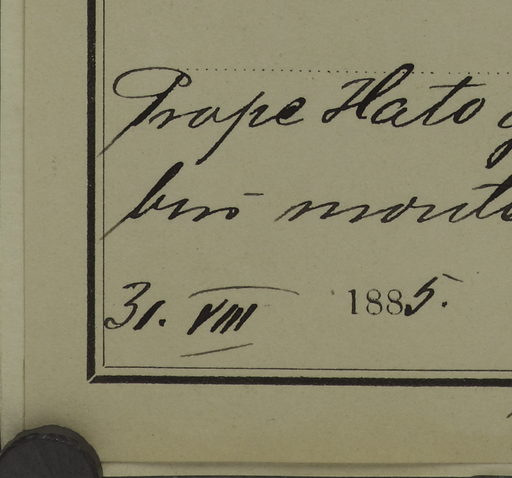 Prope Hato
bus monti
31. VIII 1885.